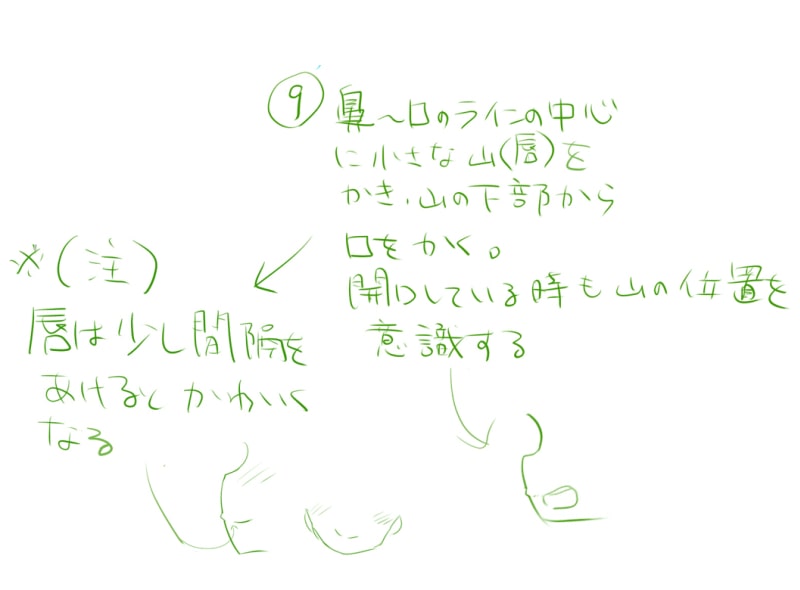 ⑨ 鼻〜口のラインの中心
に小さな山(唇)を
かき、山の下部から
口をかく。
開口している時も山の位置を
意識する
※(注)
唇は少し間隔を
あけるとかわいく
なる